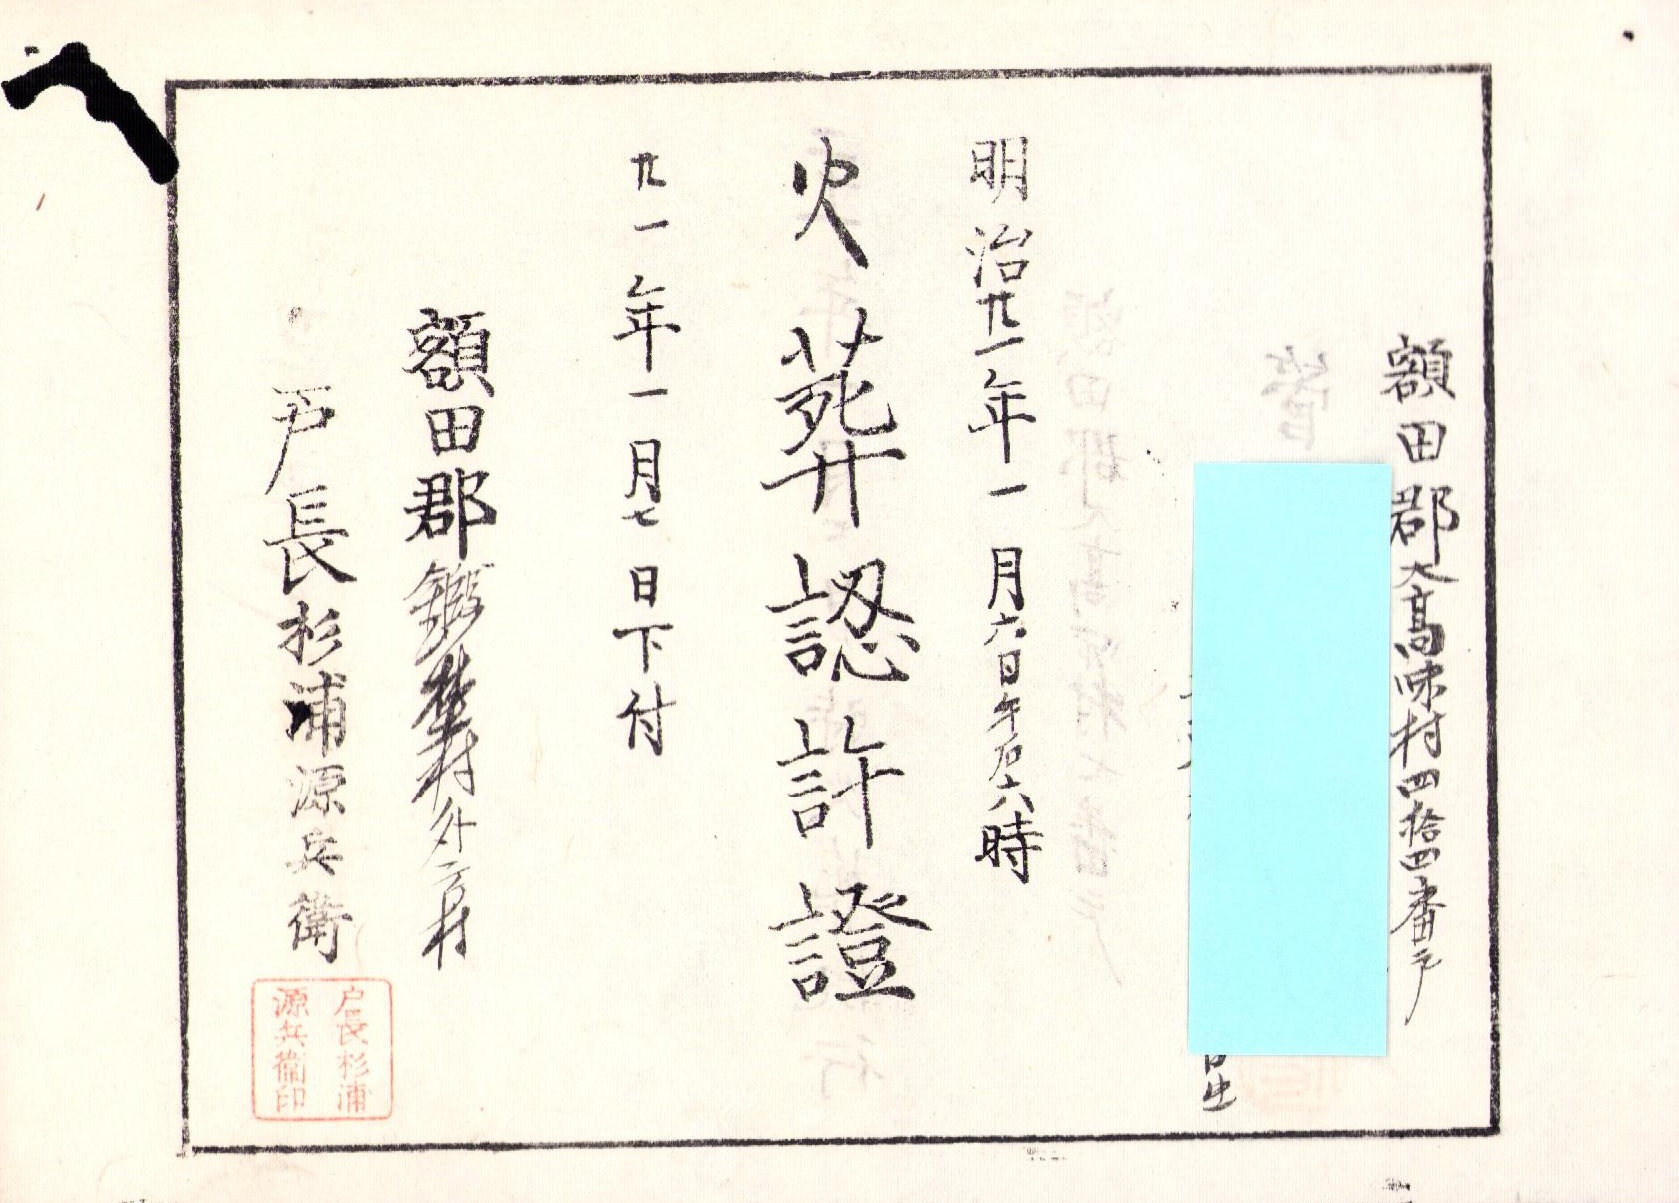 額田郡大高味村四拾四番戸
日生
明治廿一年一月六日午后六時
火葬認許證
廿一年一月七日下付
額田郡鍛埜村外二ヶ村
戸長杉浦源兵衛
戸長杉浦
源兵衛印